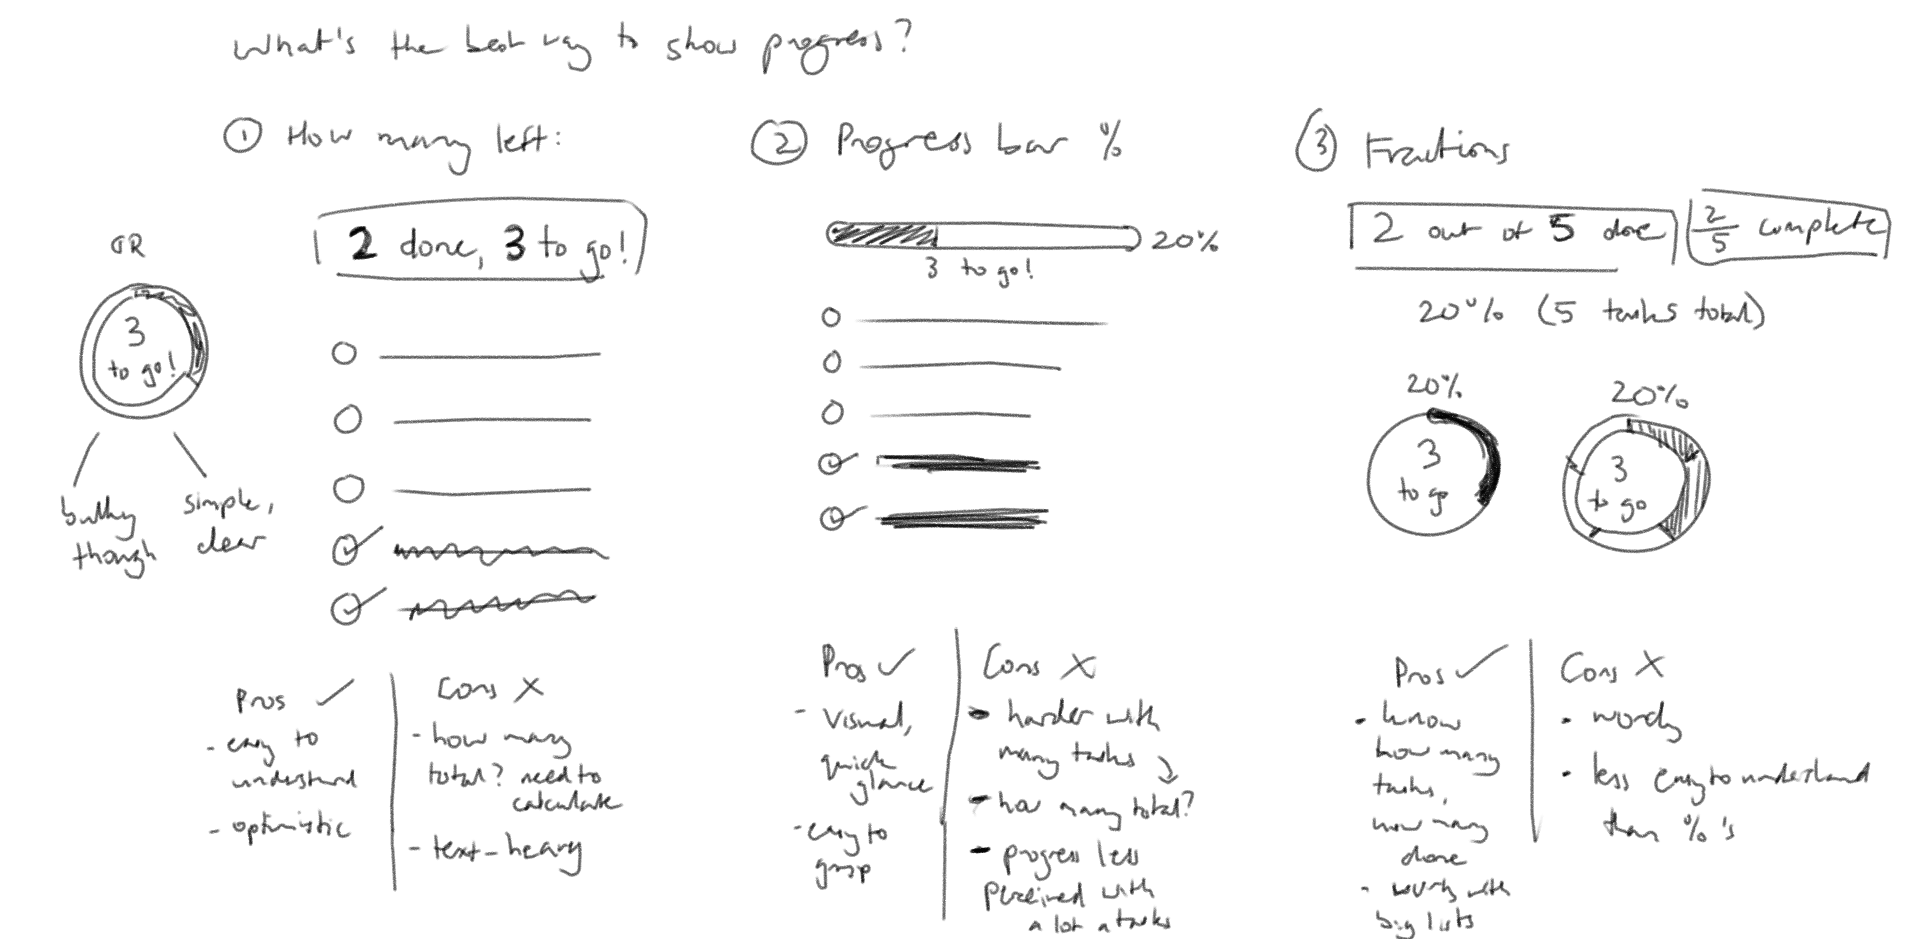 What's the best way to show progress?
① How many left:
OR
2 done, 3 to go!
3
to go!
bulky
though
simple,
clear
Pros ✓
- easy to
understand
- optimistic
Cons X
- how many
total? need to
calculate
- text-heavy
② Progress bar %
20%
3 to go!
Pros ✓
- visual,
quick
glance
- easy to
grasp
Cons X
- harder with
many tasks
- how many total?
- progress less
perceived with
a lot a tasks
③ Fractions
2 out of 5 done
2/5 complete
20% (5 tasks total)
20%
3
to go
20%
3
to go
Pros ✓
• know
how many
tasks,
how many
done
- works with
big lists
Cons X
• wordy
• less easy to understand
than %'s